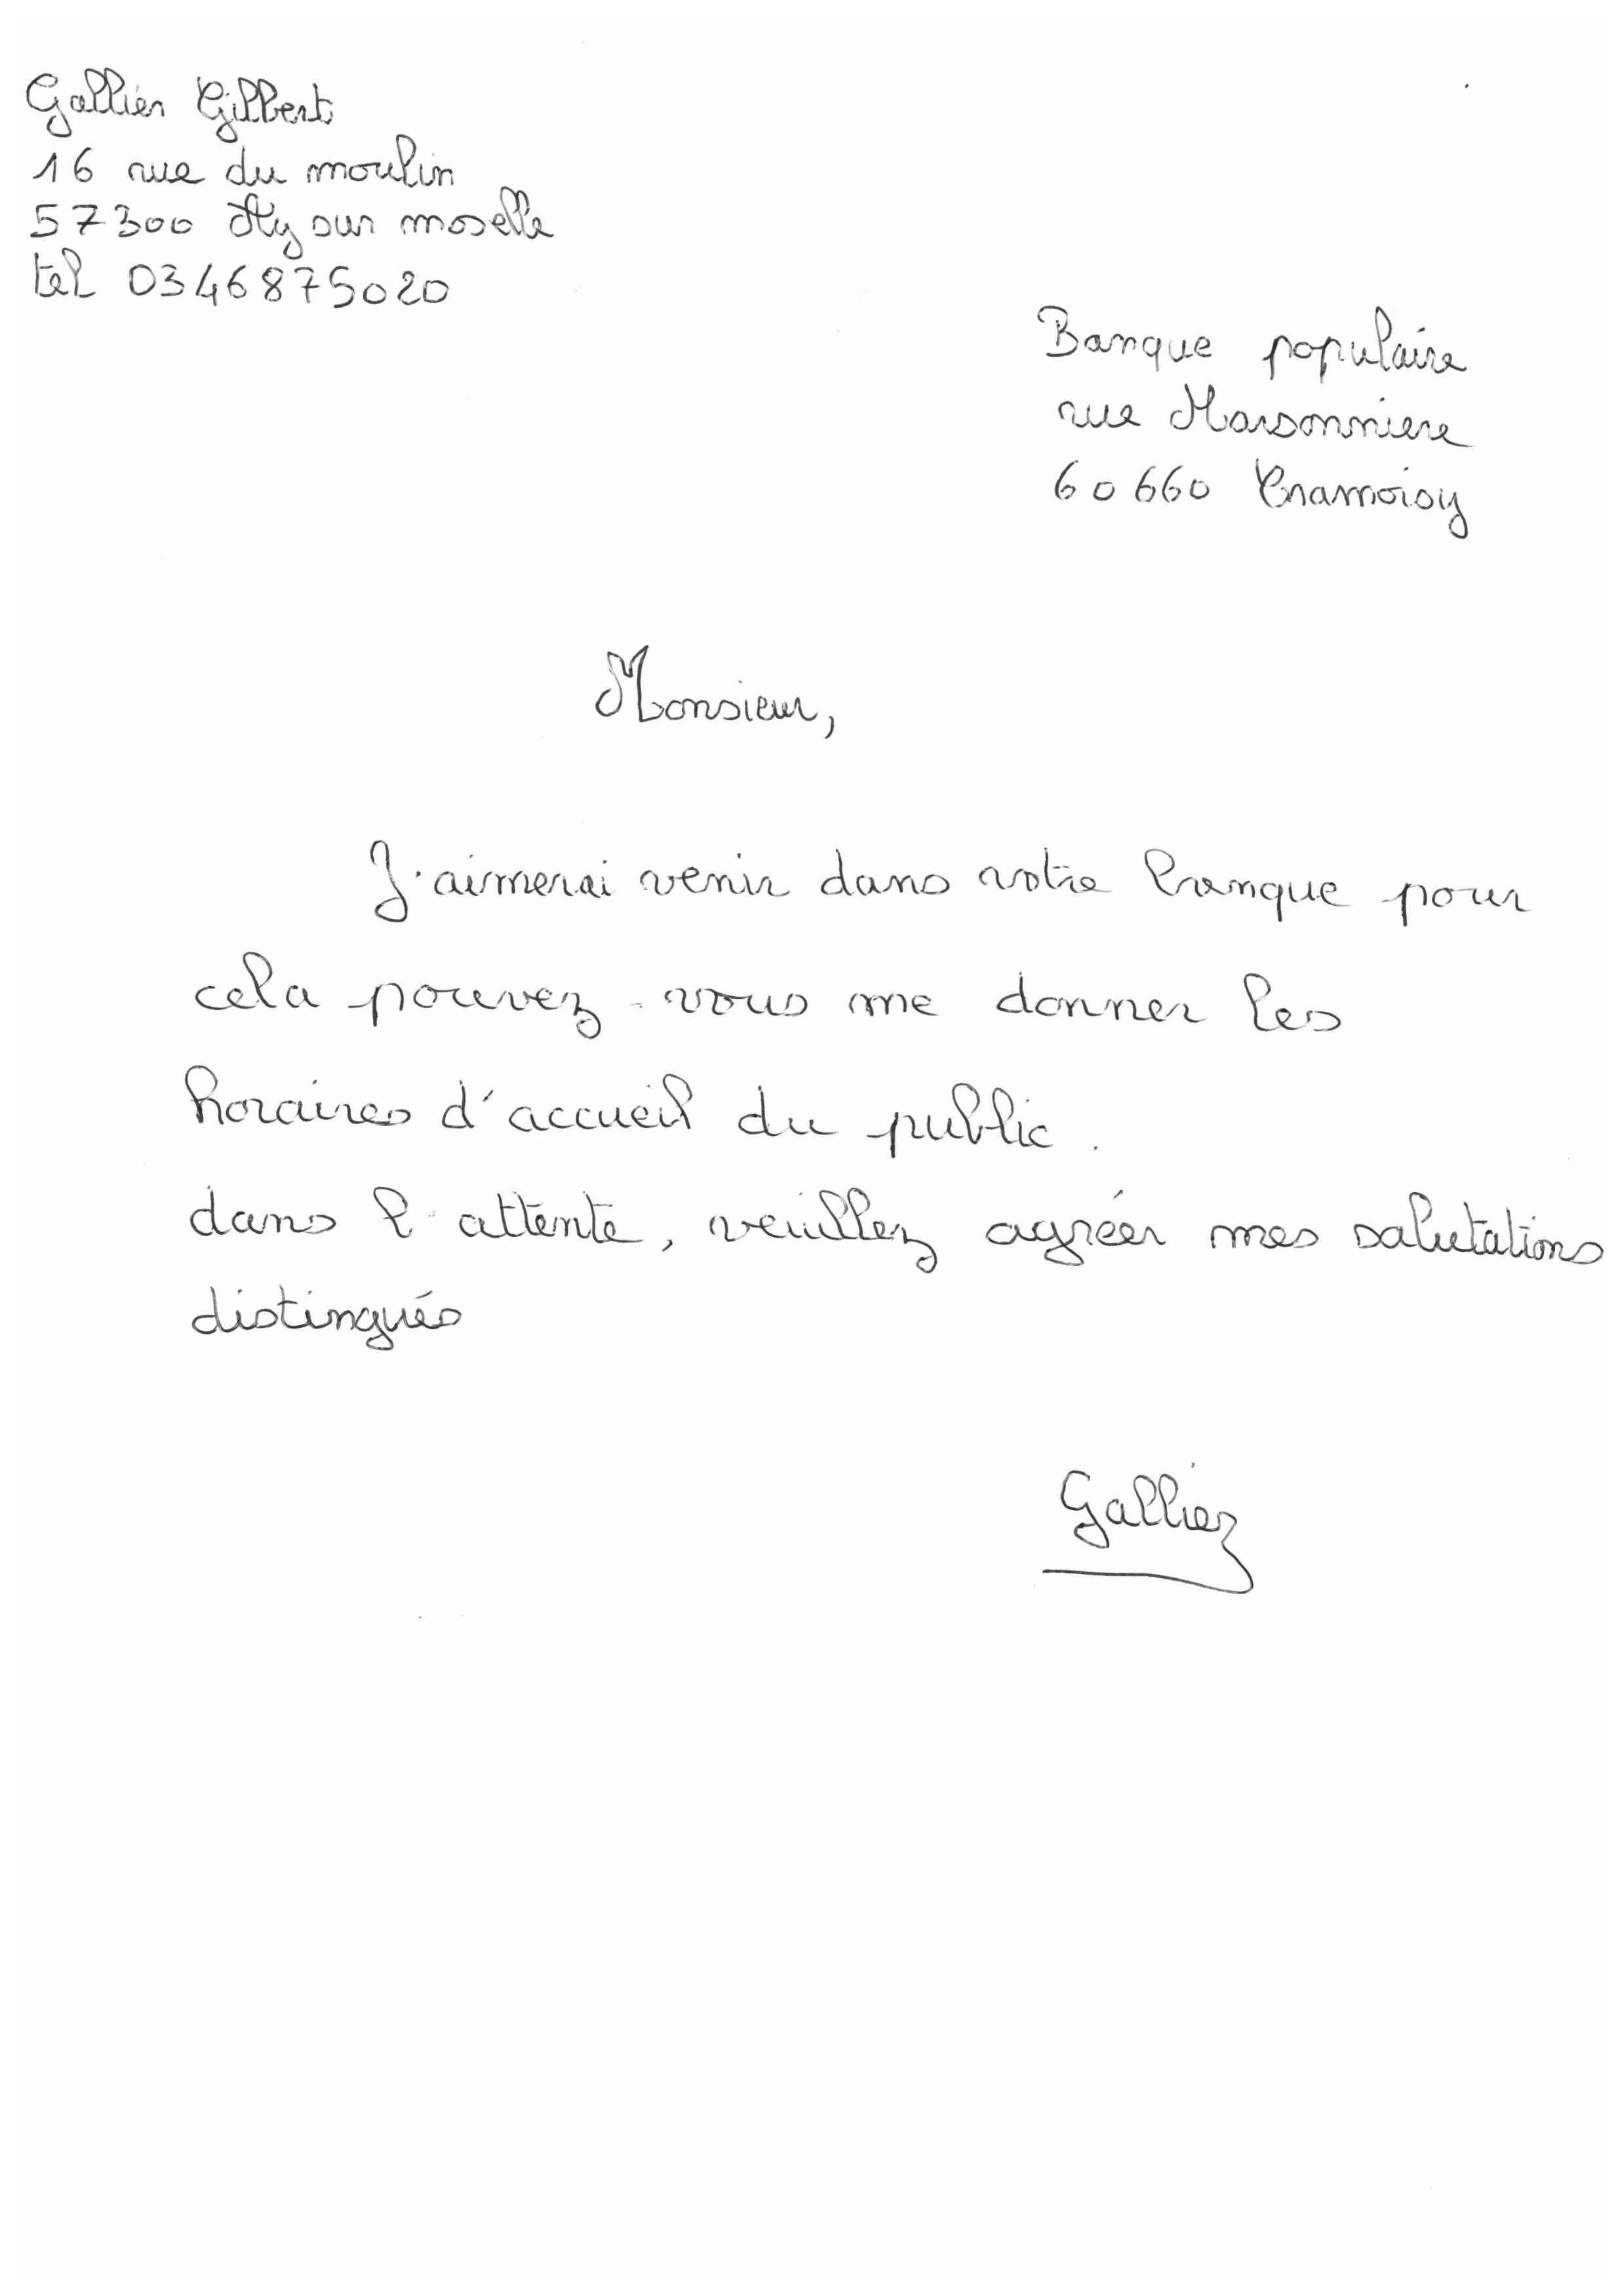 Gallien Gilbert
16 rue du moulin
57300 Ay sur moselle
tel 0346875020
Banque populaire
rue Marsonniere
60660 Cramoisy
Monsieur,
J'aimerai venir dans votre banque pour
cela pouvez-vous me donner les
horaires d'accueil du public.
dans l'attente, veuillez agréer mes salutations
distingués
Gallien